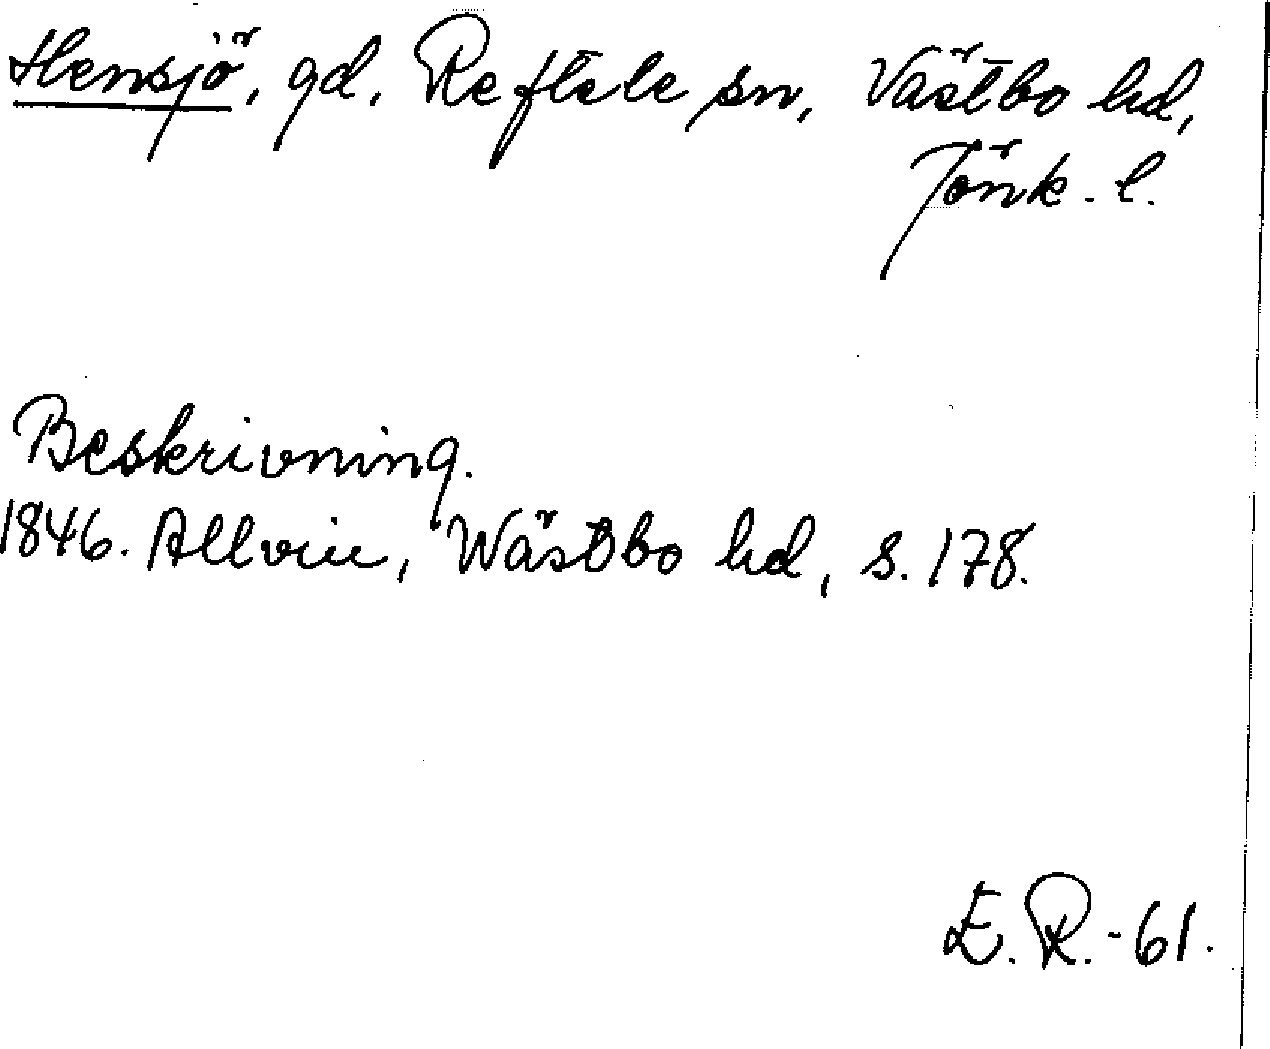 Hensjö, gd, Reftele sn, Västbo hd,
Jönk. l.
Beskrivning.
1846. Allvin, Wästbo hd, s. 178.
E. R. - 61.